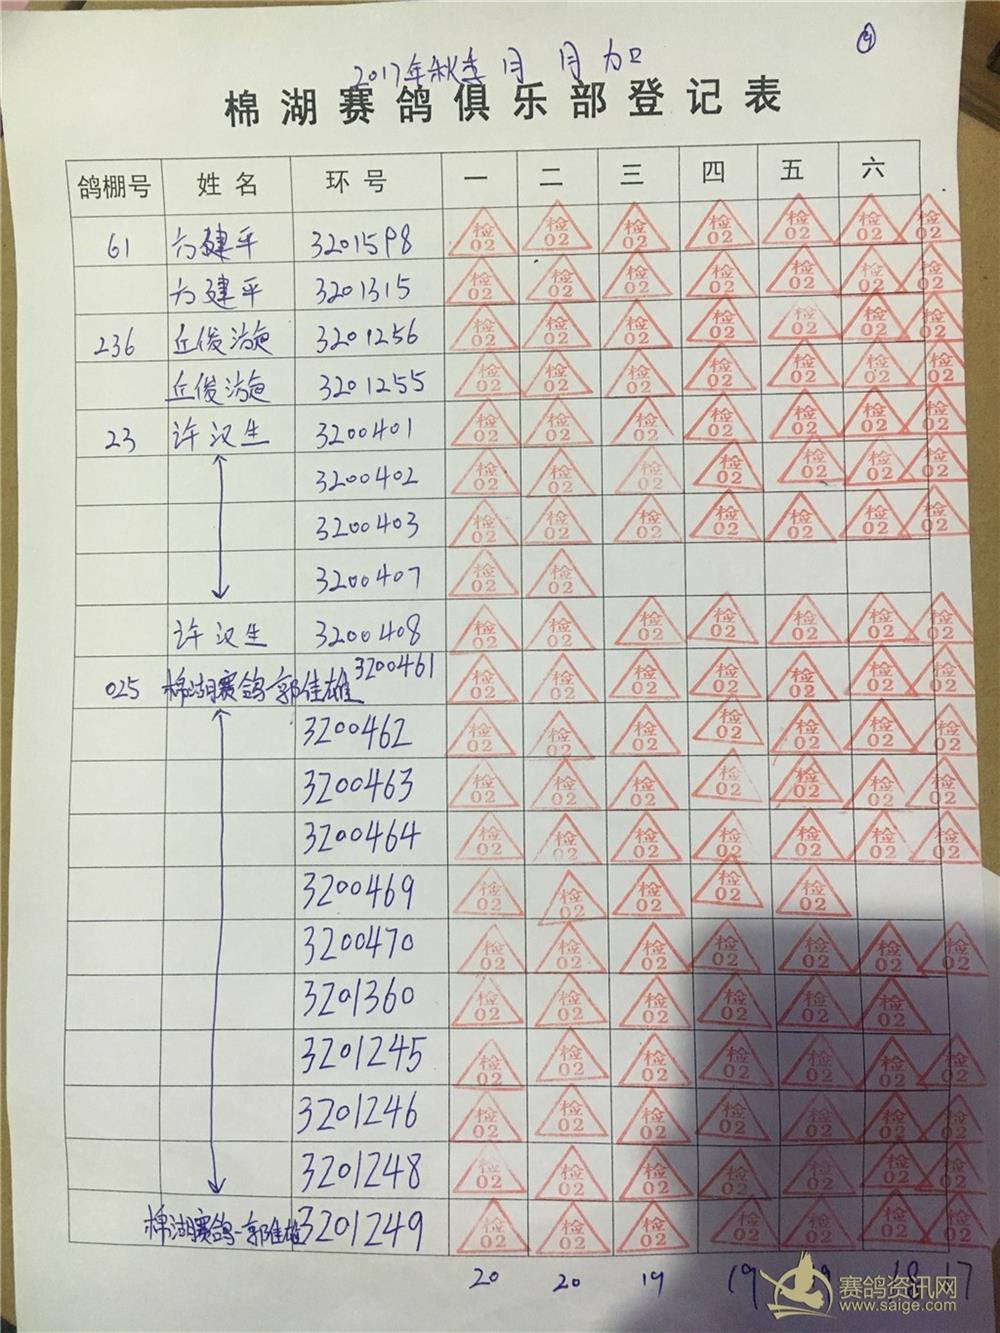 ④
2017年秋季 月 月 加
棉湖赛鸽俱乐部登记表
鸽棚号 姓名 环号 一 二 三 四 五 六
61 方建平 3201598 检02 检02 检02 检02 检02 检02 检02
方建平 3201315 检02 检02 检02 检02 检02 检02 检02
236 丘俊鴻 3201256 检02 检02 检02 检02 检02 检02 检02
丘俊鴻 3201255 检02 检02 检02 检02 检02 检02 检02
23 许汉生 3200401 检02 检02 检02 检02 检02 检02 检02
3200402 检02 检02 检02 检02 检02 检02 检02
3200403 检02 检02 检02 检02 检02 检02 检02
3200407 检02 检02
许汉生 3200408 检02 检02 检02 检02 检02 检02 检02
025 棉湖赛鸽-郭佳雄 3200461 检02 检02 检02 检02 检02 检02 检02
3200462 检02 检02 检02 检02 检02 检02 检02
3200463 检02 检02 检02 检02 检02 检02 检02
3200464 检02 检02 检02 检02 检02 检02 检02
3200469 检02 检02 检02 检02 检02
3200470 检02 检02 检02 检02 检02 检02 检02
3201360 检02 检02 检02 检02 检02 检02
3201245 检02 检02 检02 检02 检02 检02 检02
3201246 检02 检02 检02 检02 检02 检02 检02
3201248 检02 检02 检02 检02 检02 检02 检02
棉湖赛鸽-郭佳雄 3201249 检02 检02 检02 检02 检02 检02 检02
20 20 19 19 19 18 17
赛鸽资讯网
www.saige.com